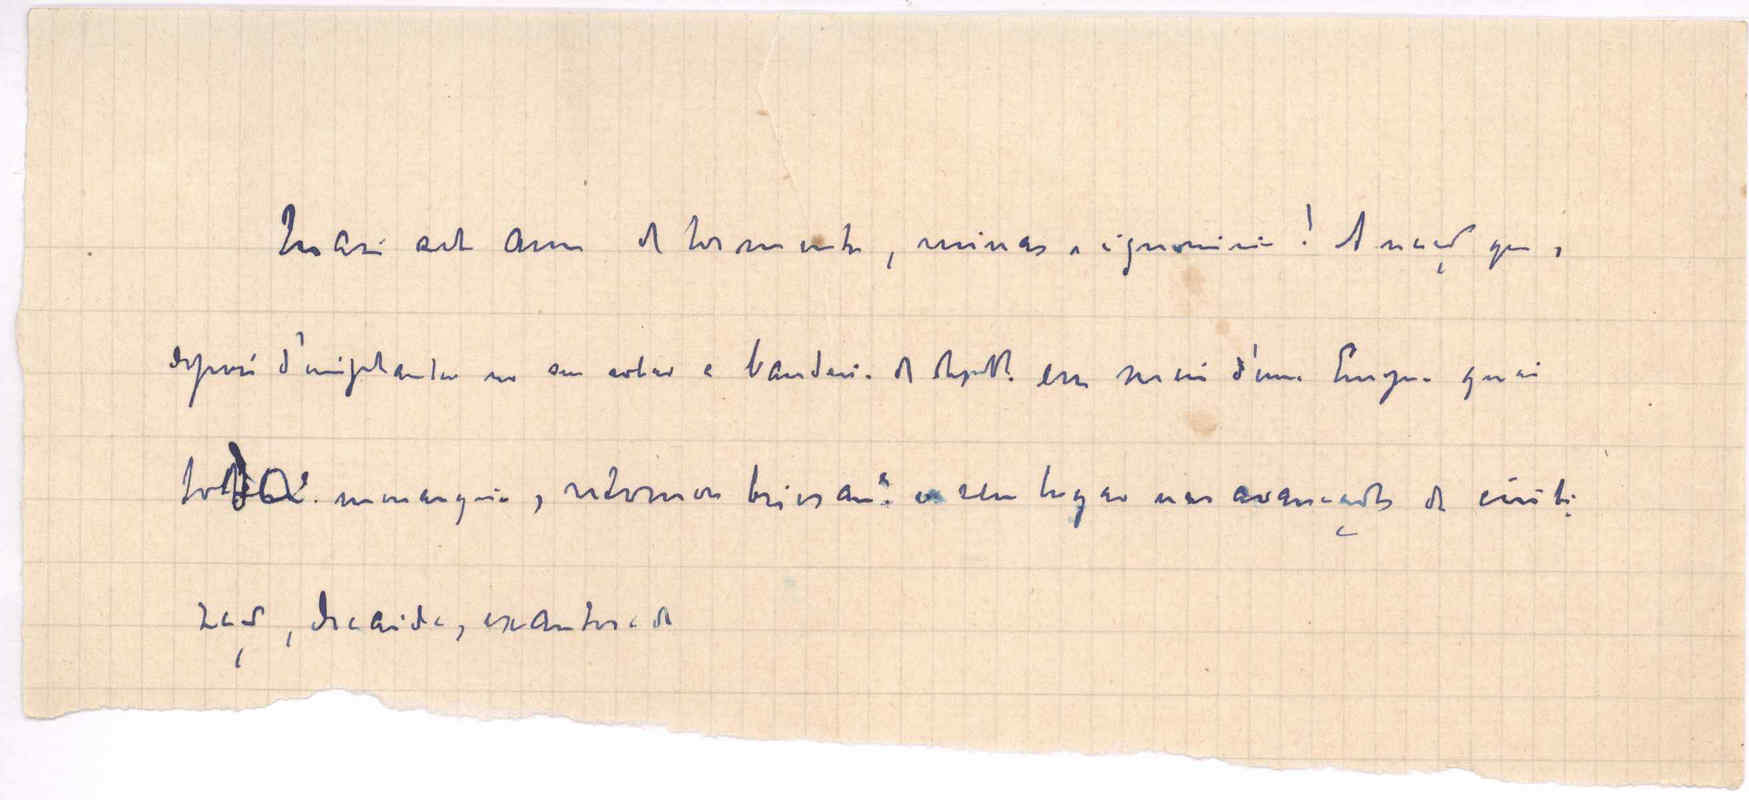 Quasi sete annos de tormentos, ruinas e ignominia! A nação que,
depois d'implantar no seu solar a bandeira da Republica em meio d'uma Europa quasi
toda monarquica, retomou o seu lugar nas avançadas da civili-
zação, decaida, exautorada